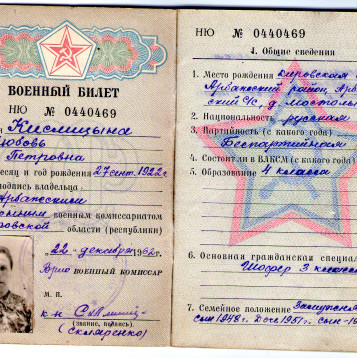 ВОЕННЫЙ БИЛЕТ
НЮ № 0440469
Кислицына
Любовь
Петровна
есяц и год рождения 27 сент. 1922 г
подпись владельца
Арбажским
военным комиссариатом
ровской области (республики)
„22“ декабря 1962 г.
Врио ВОЕННЫЙ КОМИССАР
М. П.
к-н
(звание, подпись)
(Скляренко)
НЮ № 0440469
I. Общие сведения
1. Место рождения Кировская
Арбажский район, Арба
ский с/с, д. Мостол
2. Национальность русская
3. Партийность (с какого года)
Беспартийная
4. Состоит ли в ВЛКСМ (с какого года)
5. Образование 4 класса
6. Основная гражданская специа
Шофер 3 класса
7. Семейное положение Замужняя
сын 1948 г. Дочь 1951 г. сын-19